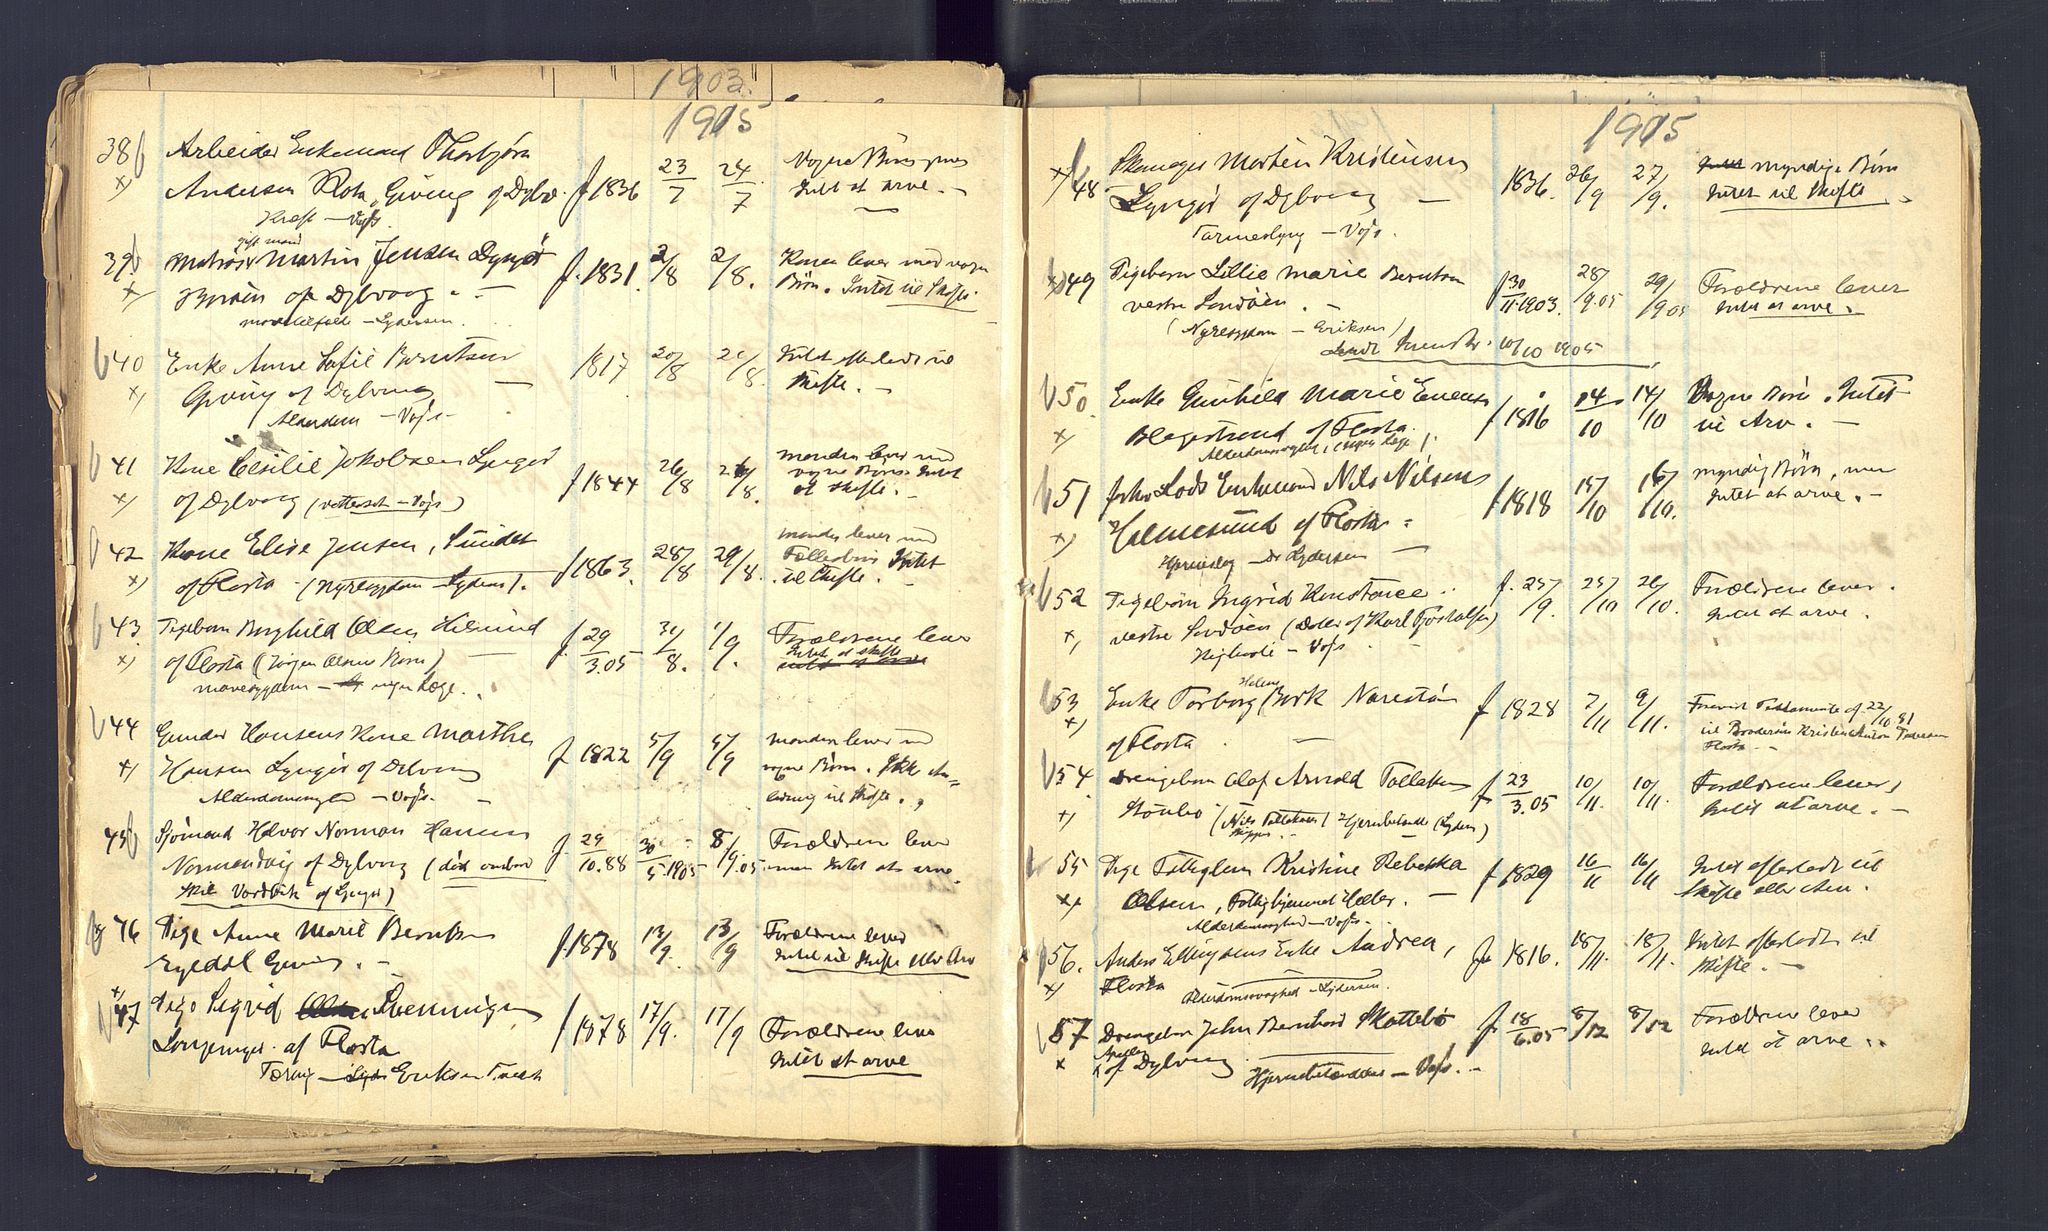 1903.
1915
38
Arbeider Enkemand Thorbjørn
Andersen Rota, Gjving of Dybv.
Kræft – Vogs.
f 1836 23/7 24/7
Vogne Børn men
Intet at arve. –
39
gift mand
Matros Martin Jensen Lyngør
of Dybvaag. –
Lydersen.
f. 1831. 2/8 2/8.
Konen lever med vogne
Børn. Intet til Skifte.
40
Enke Anne Sofie Berntsen
Gjving of Dybvaag –
Alderdom – Vogs.
1817 20/8 21/8.
Intet efterladt til
Skifte. –
41
Kone Cesilie Jakobsen Lyngør
of Dybvaag (vattersot – Vogs)
f 1844 26/8 26/8.
Manden lever med
vogne Børn Intet
at skifte. –
42
Kone Elise Jensen, Sundet
of Flosta. (Nyresygdom – Lydersen).
f 1863. 28/8 29/8.
Manden lever med
Fællesbørn Intet
til Skifte. –
43
Pigebarn Borghild Olsen
of Flosta (Jørgen Olsens Barn)
mavesygdom – ingen Læge.
f. 29/3.05 31/8. 1/9.
Forældrene lever
Intet at skifte
44
Gunder Hansens Kone Marthe
Hansen Lyngør of Dybvaag
– Vogs. –
f. 1822 5/9 5/9
Manden lever med
vogne Børn. Ikke An-
ledning til Skifte.
45
Sjømand Halvor Norman Hansen
Normandvig of Dybvaag (død ombord
Skib Vardbak of Lyngør)
f. 29/10.88 30/5 1905 8/9.05
Forældrene lever
men Intet at arve.
46
Pige Anne Marie Berntsen
Gjving. –
f 1878 13/9. 13/9
Forældrene lever
Intet til Skifte eller Arv
47
Pige Sigrid Svenningsen
of Flosta
Tæring – Eriksen Tvedest.
f 1878 17/9. 17/9
Forældrene lever
Intet at arve
1915
48
Martin Kristensen
Lyngør of Dybvaag –
Tarmeslyng – Vogs.
1836. 26/9 27/9.
myndige Børn
Intet til Skifte.
49
Pigebarn Lillie Marie Berntsen
vestre Sandøen. –
(Nyresygdom – Eriksen)
f 30/11 1903. 28/9.05 29/9 05
Forældrene lever
Intet at arve.
10/10 1905
50.
Enke Gunhild Marie Evensen
of Flosta.
(ingen Læge).
f 1816 14/10 14/10
Vogne Børn. Intet
til Arv. –
51
Lods Enkemand Nils Nilsen
Holmesund of Flosta.
Hjerneslag – Dr Lydersen –
f 1818 15/10 16/10.
myndig Børn, men
Intet at arve. –
52
Pigebarn Ingrid Konstance
vestre Sandøen (Datter af Karl Gustavsen)
Kighoste – Vogs.
f. 25/9. 25/10 26/10.
Forældrene lever.
Intet at arve.
53
Helene
Enke Torborg Bork Narestø
of Flosta. –
f 1828 7/11 9/11.
Testamente af 22/10 91
til Brodersøn Kristen Anton Pedersen
Flosta. –
54
Drengebarn Olaf Arnold Tallaksen
Staubø (Nils Tallaksen) Hjernebetændelse (Lydersen)
Skipper.
f. 23/3.05 10/11. 10/11.
Forældrene lever,
Intet at arve. –
55
Pige Fattiglem Kristine Rebekka
Olsen, –
Alderdomssvaghed – Vogs.
f 1829 16/11 16/11
Intet efterladt til
Skifte eller Arv.
56.
Anders Ellingsens Enke Andrea,
Flosta
Alderdomssvaghed – Lydersen.
f. 1816. 18/11. 18/11.
Intet efterladt til
Skifte. –
57
Drengebarn John Bernhard Skottebø
of Dybvaag.
Hjernebetændelse – Vogs. –
f. 18/6.05 8/12 8/12
Forældrene lever
Intet at arve.